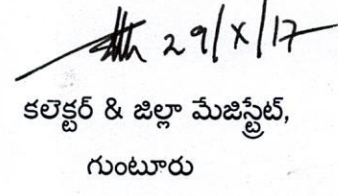 29/X/17
కలెక్టర్ & జిల్లా మేజిస్ట్రేట్,
గుంటూరు